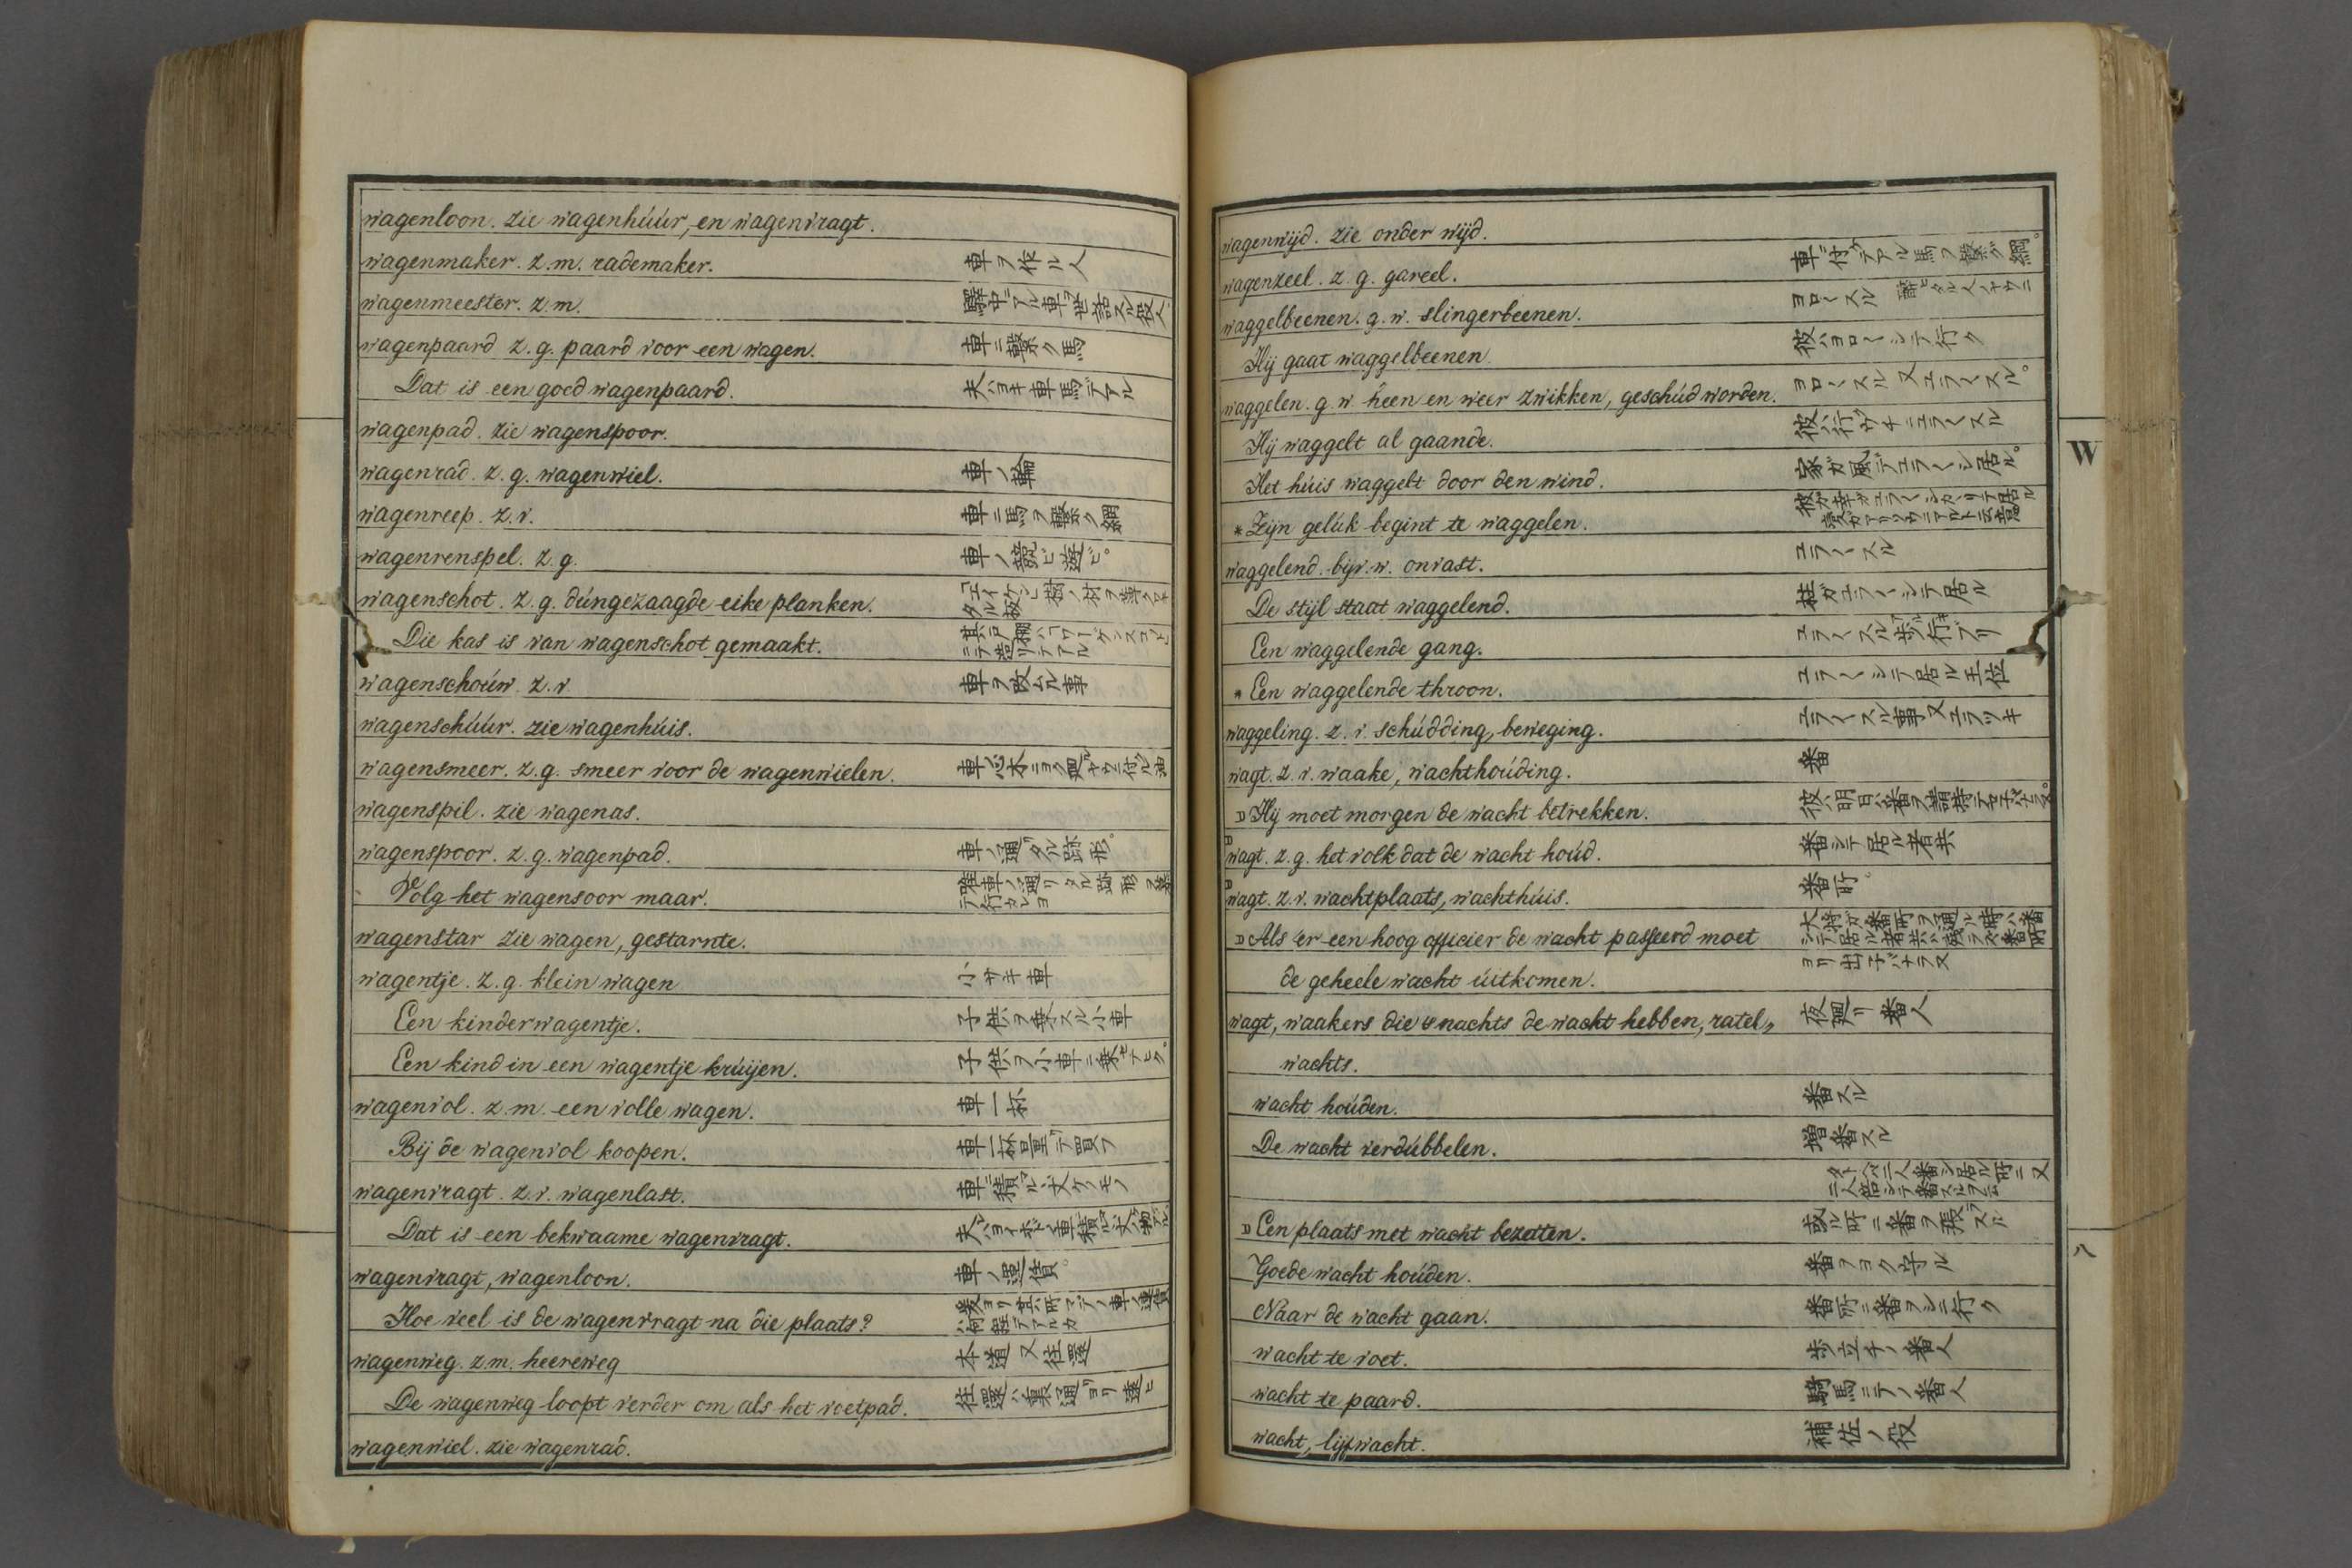 wagenloon. zie wagenhúúr, en wagenvragt.
wagenmaker. z.m. rademaker. 車ヲ作ル人
wagenmeester. z.m.
wagenpaard z.g. paard voor een wagen. 車ニ繋ク馬
Dat is een goed wagenpaard. 夫ハヨキ車馬デアル
wagenpad. zie wagenspoor.
wagenrad. z.g. wagenwiel. 車ノ輪
wagenreep. z.v. 車ニ馬ヲ繋ク綱
wagenrenspel. z.g. 車ノ競ヒ遊ビ。
wagenschot. z.g. dúngezaagde eike planken.
Die kas is van wagenschot gemaakt.
wagenschoúw. z.v. 車ヲ改ムル事
wagenschúúr. zie wagenhúis.
wagensmeer. z.g. smeer voor de wagenwielen.
wagenspil. zie wagenas.
wagenspoor. z.g. wagenpad. 車ノ通リタル跡形。
Volg het wagensoor maar.
wagenstar zie wagen, gestarnte.
wagentje. z.g. klein wagen 小サキ車
Een kinderwagentje. 子供ヲ乗スル小車
Een kind in een wagentje krúijen. 子供ヲ小車ニ乗セテヒク。
wagenvol. z.m. een volle wagen. 車一杯
Bij de wagenvol koopen. 車一杯量リテ買フ
wagenvragt. z.v. wagenlast.
Dat is een bekwaame wagenvragt.
wagenvragt, wagenloon. 車ノ運賃。
Hoe veel is de wagenvragt na die plaats? 爰ヨリ其所マデノ車ノ運賃ハ何程デアルカ
wagenweg. z.m. heereweg 本道 又往還
De wagenweg loopt verder om als het voetpad. 往還ハ裏通リヨリ遠ヒ
wagenwiel. zie wagenrad.
wagenwijd. zie onder wijd.
wagenzeel. z.g. gareel. 車ニ付テアル馬ヲ繋グ綱。
waggelbeenen. g.w. slingerbeenen. ヨロ〱スル
Hij gaat waggelbeenen 彼ハヨロ〱シテ行ク
waggelen. g.w. heen en weer zwikken, geschúd worden. ヨロ〱スル 又ユラ〱スル。
Hij waggelt al gaande.
Het húis waggelt door den wind. 家ガ風デユラ〱シ居ル。
* Zijn gelúk begint te waggelen.
waggelend. bijv.w. onvast. ユラ〱スル
De stijl staat waggelend. 柱ガユラ〱シテ居ル
Een waggelende gang. ユラ〱スル歩行ブリ
* Een waggelende throon. ユラ〱シテ居ル王位
waggeling. z.v. schúdding, beweging. ユラ〱スル事又ユラツキ
W
wagt. z.v. waake, wachthoúding. 番
Hij moet morgen de wacht betrekken.
wagt. z.g. het volk dat de wacht hoúd. 番シテ居ル者共
wagt. z.v. wachtplaats, wachthúis. 番所。
Als 'er een hoog officier de wacht passeerd moet
de geheele wacht úitkomen. ヨリ出子バナラヌ
wagt, waakers die 's nachts de wacht hebben, ratel„ 夜廻リ番人
wachts.
wacht hoúden. 番スル
De wacht verdúbbelen. 増番スル
Een plaats met wacht bezetten.
Goede wacht hoúden. 番ヲヨク守ル
Naar de wacht gaan. 番所ニ番ヲシニ行ク
wacht te voet. 歩立チノ番人
wacht te paard. 騎馬ニテノ番人
wacht, lijfwacht. 補佐ノ役
八